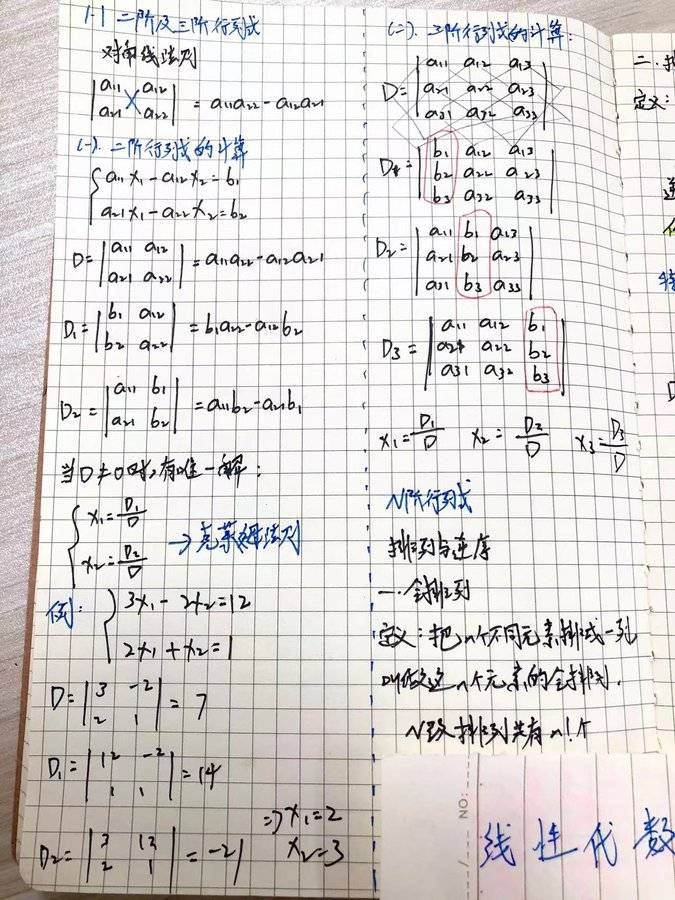 1-1 二阶及三阶行列式
对角线法则
|a11 a12|
|a21 a22| = a11a22-a12a21
(一). 二阶行列式的计算
{a11x1-a12x2=b1
{a21x1-a22x2=b2
D=|a11 a12|
|a21 a22| =a11a22-a12a21
D1=|b1 a12|
|b2 a22| =b1a22-a12b2
D2=|a11 b1|
|a21 b2| =a11b2-a21b1
当D≠0时,有唯一解:
{x1=D1/D
{x2=D2/D
→克莱姆法则
例:
{3x1-2x2=12
{2x1+x2=1
D=|3 -2|
|2 1| = 7
D1=|12 -2|
|1 1| =14
D2=|3 12|
|2 1| =-21
=>x1=2
x2=3
(二). 三阶行列式的计算:
D=|a11 a12 a13|
|a21 a22 a23|
|a31 a32 a33|
D1=|b1 a12 a13|
|b2 a22 a23|
|b3 a32 a33|
D2=|a11 b1 a13|
|a21 b2 a23|
|a31 b3 a33|
D3=|a11 a12 b1|
|a21 a22 b2|
|a31 a32 b3|
x1=D1/D x2=D2/D x3=D3/D
N阶行列式
排列与逆序
一.全排列
定义:把n个不同元素排成一列
叫做这n个元素的全排列.
N级排列共有n!个
NO:
线性代数
二.排
定义: